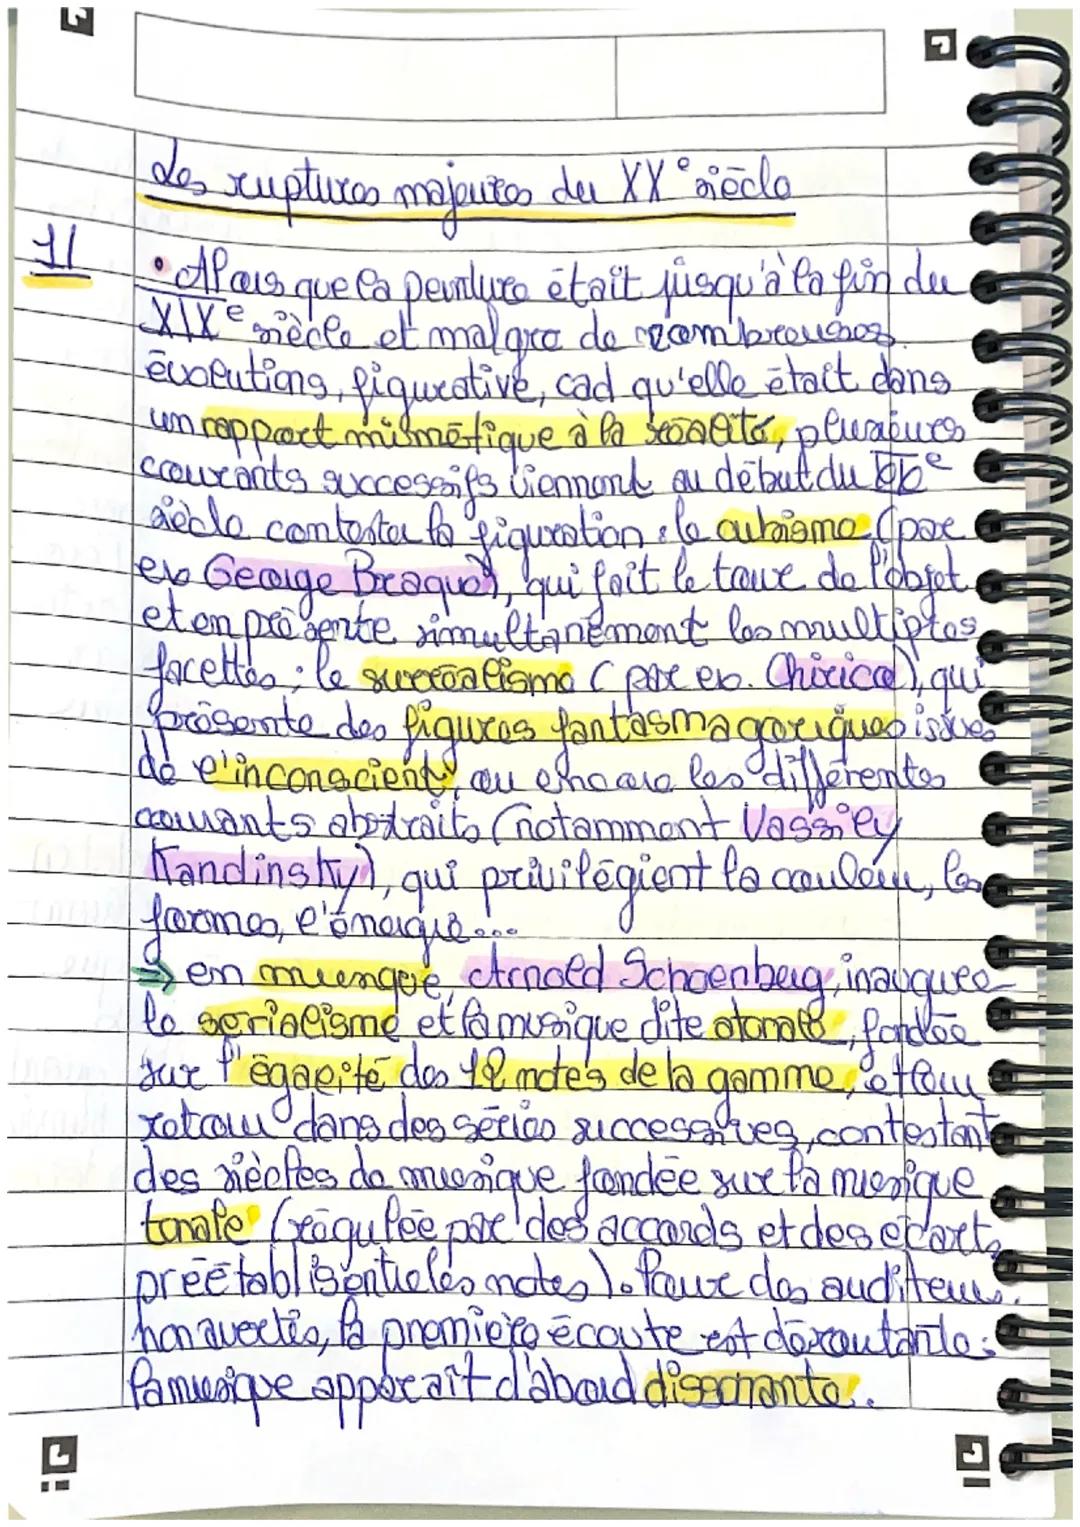 Les ruptures majeures du XXe siècle
1/
• Alors que la peinture était jusqu'à la fin du
XIXe siècle et malgré de nombreuses
évolutions, figurative, càd qu'elle était dans
un rapport mismétique à la réalité, plusieurs
courants successifs viennent au début du XXe
siècle contester la figuration : le cubisme (par
ex George Braque), qui fait le tour de l'objet
et en présente simultanément les multiples
facettes ; le surréalisme (par ex. Chirico), qui
présente des figures fantasmagoriques issues
de l'inconscient, ou encore les différentes
courants abstraits (notamment Vassiley
Kandinsky), qui privilégient la couleur, les
formes, l'énergie...
→ en musique, Arnold Schoenberg, inaugure
le serialisme et la musique dite atonale, fondée
sur l'égalité des 12 notes de la gamme, et leur
retour dans des séries successives, contestant
des siècles de musique fondée sur la musique
tonale (régulée par des accords et des écarts
préétablis entre les notes). Pour des auditeurs
non avertis, la première écoute est déroutante :
la musique apparait d'abord dissonante.